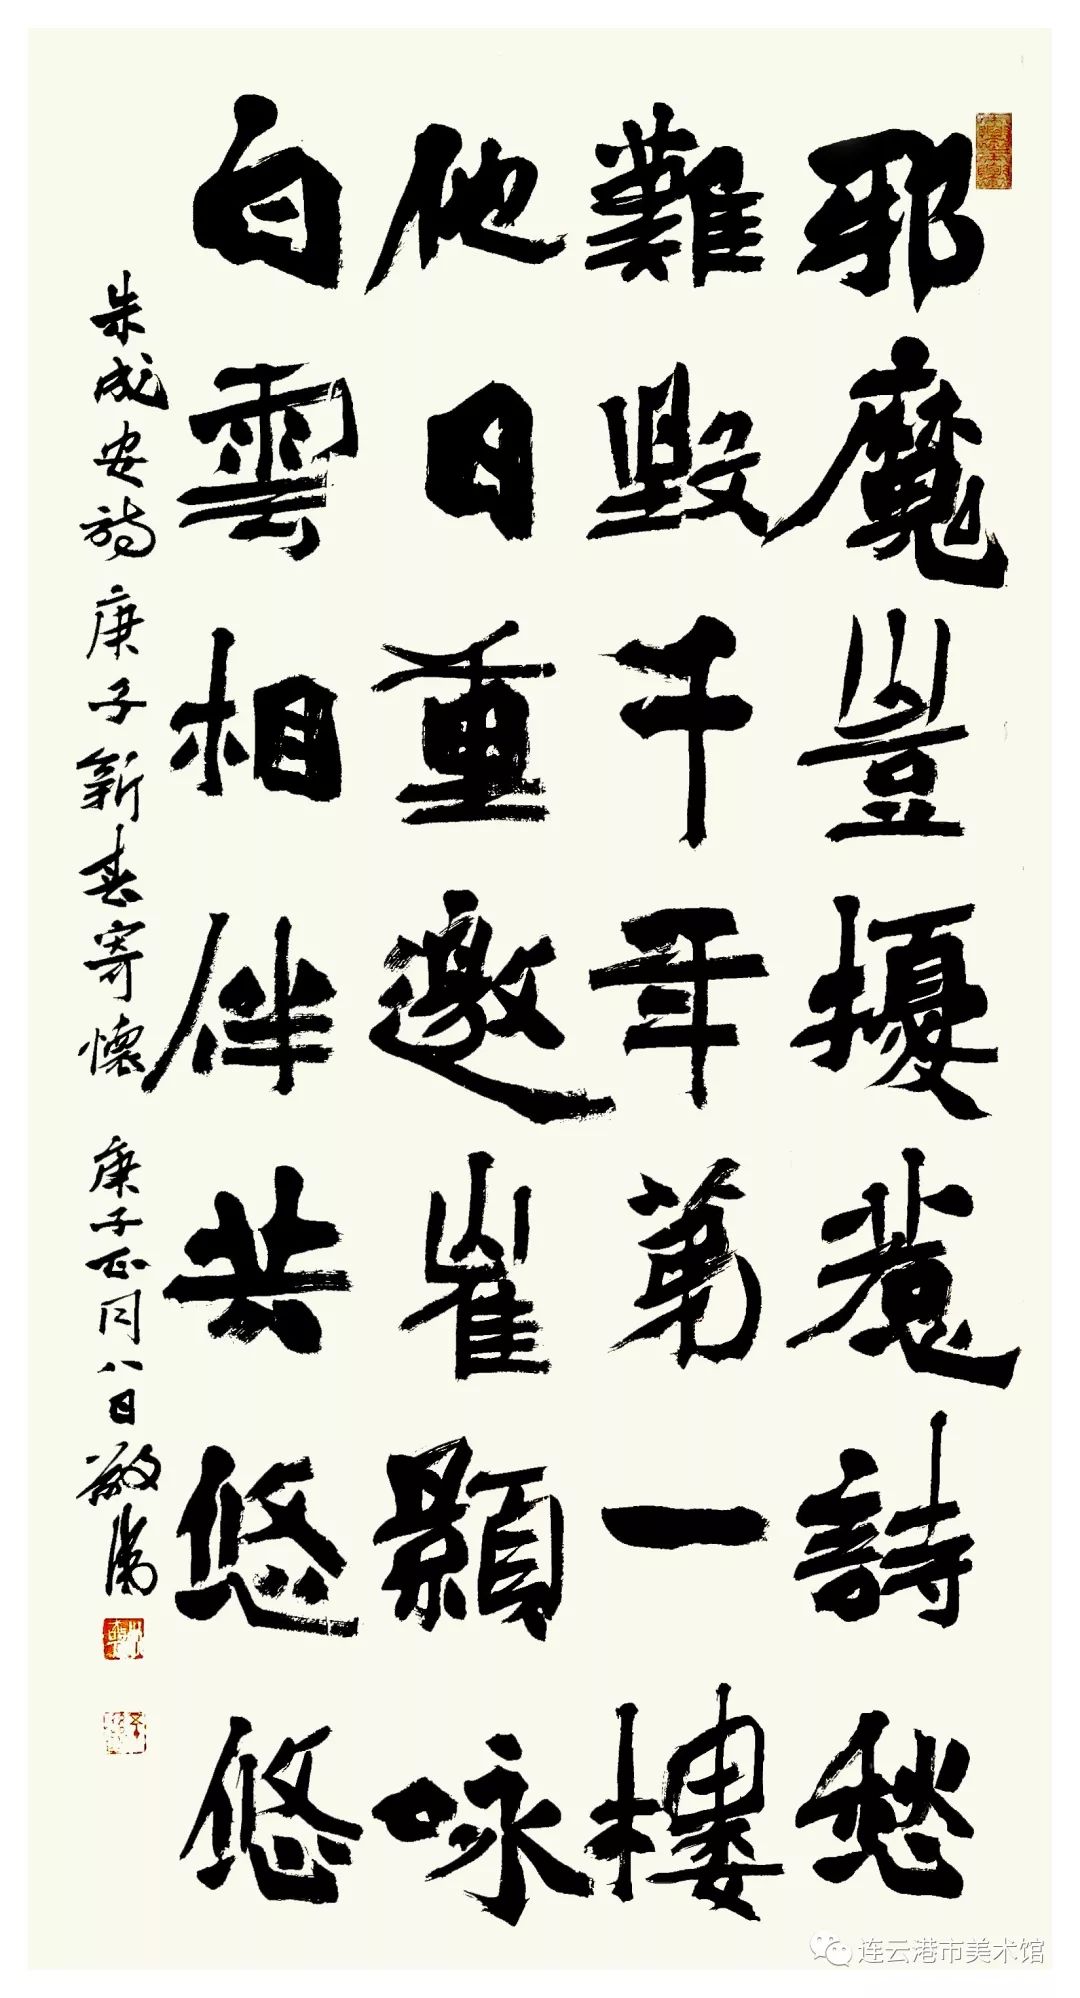 邪魔豈擾惹詩愁
難毀千年第一樓
他日重邀崔顥咏
白雲相伴共悠悠
朱成安詩庚子新春寄懷 庚子正月八日敬
连云港市美术馆